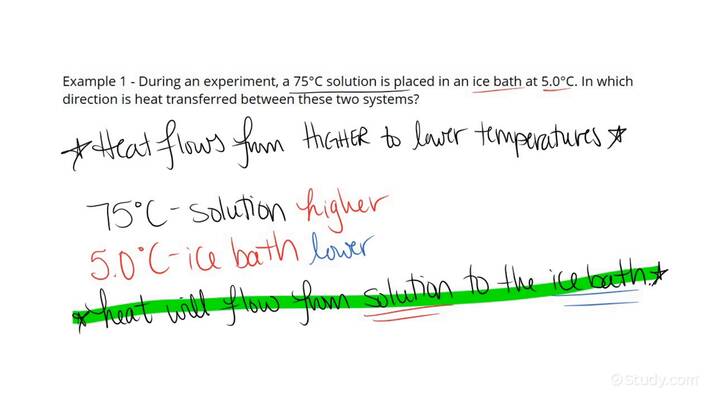 Example 1 - During an experiment, a 75°C solution is placed in an ice bath at 5.0°C. In which
direction is heat transferred between these two systems?
★ Heat flows from HIGHER to lower temperatures ★
75°C - solution higher
5.0°C - ice bath lower
★ heat will flow from solution to the ice bath. ★
©Study.com